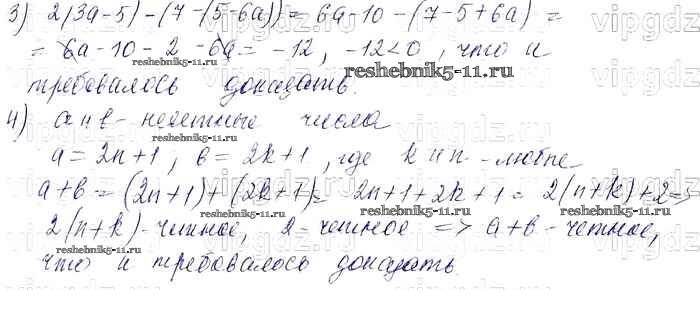 3) 2(3a-5)-(7-(5-6a)) = 6a-10-(7-5+6a) =
= 6a-10-2-6a = -12, -12<0, что и
требовалось доказать.
4) a и в - нечетные числа
a = 2n+1, в = 2k+1, где k и n - любые
a+в = (2n+1)+(2k+1) = 2n+1+2k+1 = 2(n+k)+2 =>
2(n+k) - четное, 2 - четное => a+в - четное,
что и требовалось доказать.
reshebnik5-11.ru
vipgdz.ru